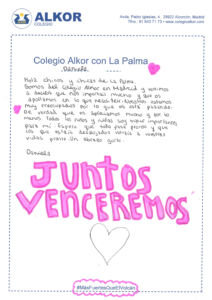 ALKOR
COLEGIO
Avda. Pablo Iglesias, s. 28922 Alcorcón, Madrid
www.colegioalkor.com
Colegio Alkor con La Palma
Daniela
Hola chicos y chicas de La Palma
Somos del Colegio Alkor en Madrid y venimos
a deciros que nos importáis mucho y que os
apoyamos en lo que necesitéis. Nosotros estamos
muy preocupados por lo que os está pasando
de verdad que os queremos mucho y por lo
menos todos los niños y niñas sois súper importantes
para mí. Espero que todo pase pronto y que
los que estáis
Un abrazo
Daniela
JUNTOS
VENCEREMOS
#MásFuertesQueElVolcán